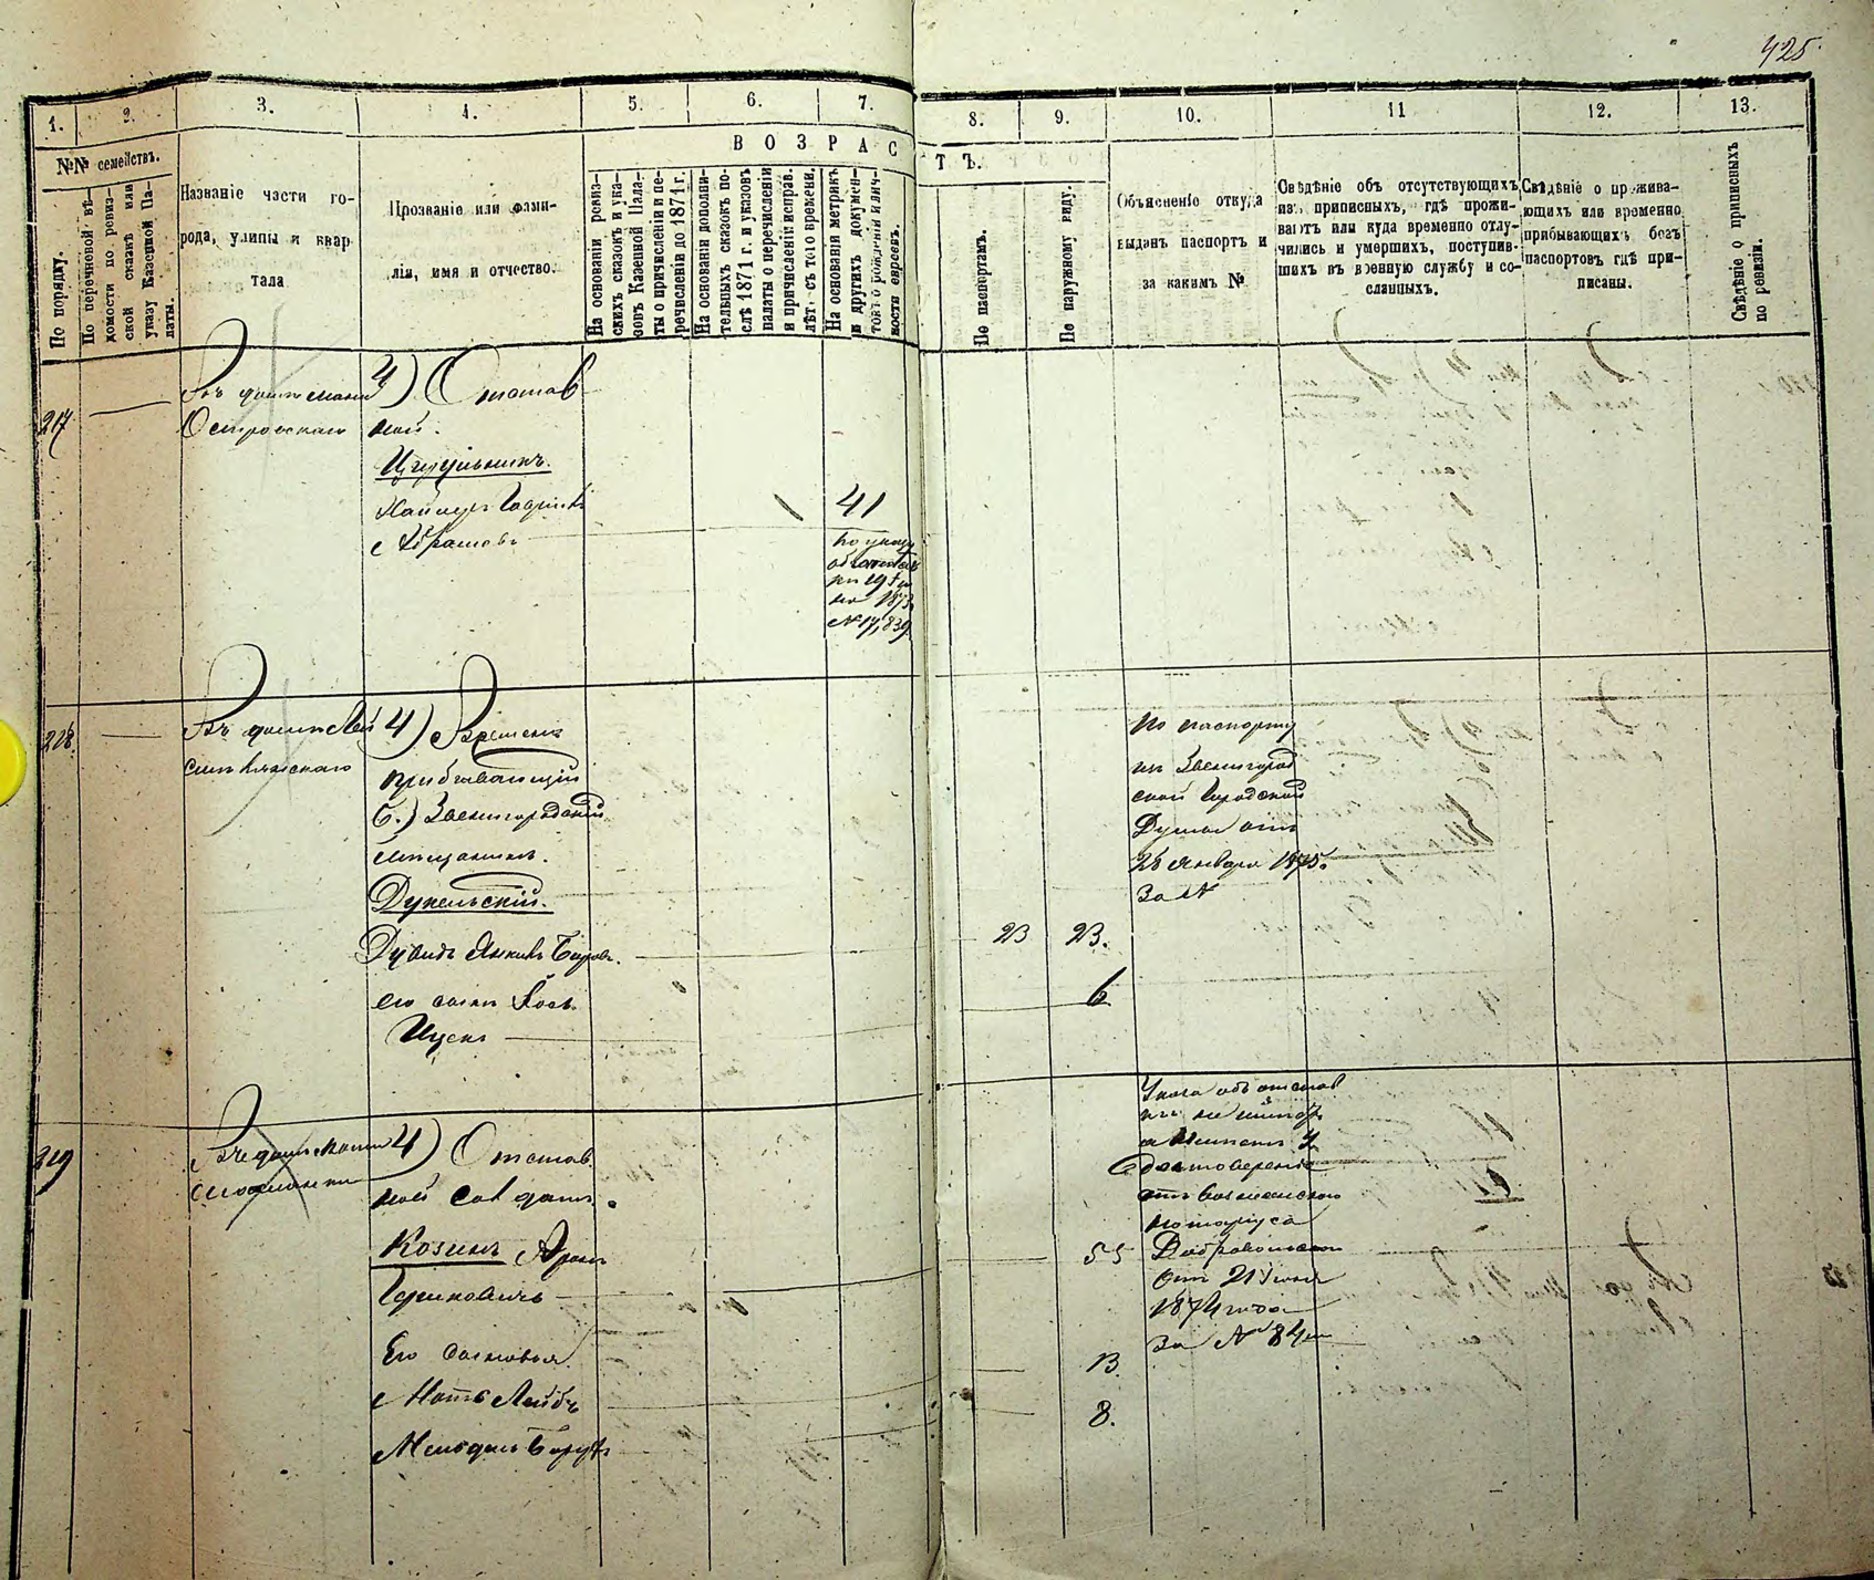 425.
1.
2.
3.
4.
5.
6.
7.
8.
9.
10.
11
12.
13.
№№ семействъ.
ВОЗРАС
ТЪ.
По порядку.
По перечневой вѣ-
домости по ревиз-
ской сказкѣ или
указу Казенной Па-
латы.
Названіе части го-
рода, улицы и квар
тала
Прозваніе или фами-
лія, имя и отчество.
На основаніи ревиз-
скихъ сказокъ и ука-
зовъ Казенной Пала-
ты о причисленіи и пе-
речисленіи до 1871 г.
На основаніи дополни-
тельныхъ сказокъ по-
слѣ 1871 г. и указовъ
палаты о перечисленіи
и причисленіи исправ.
лѣтъ съ того времени.
На основаніи метрикъ
и другихъ докумен-
товъ о рожденіи и лич-
ности евреевъ.
По паспортамъ.
По наружному виду.
Объясненіе откуда
выданъ паспортъ и
за какимъ №
Свѣдѣніе объ отсутствующихъ
изъ приписныхъ, гдѣ прожи-
ваютъ или куда временно отлу-
чились и умершихъ, поступив-
шихъ въ военную службу и со-
сланныхъ.
Свѣдѣніе о прожива-
ющихъ или временно
прибывающихъ безъ
паспортовъ гдѣ при-
писаны.
Свѣдѣніе о приписныхъ
по ревизіи.
217
Въ домѣ
Островскаго
4) Отстав
ной
Цирульникъ.
Абрамовъ
41
по указу
1873
№ 17,839
218.
Въ домѣ
4) Времен
прибывающій
Б.) Звенигородскій
мѣщанинъ.
Дукельскій.
Дувидъ Янкивъ Беровъ.
его сынъ Іось
Ицекъ
23
23.
6
По паспорту
изъ Звенигород
ской Городской
Думы отъ
28 Января 1875.
За №
219
Въ домѣ
4) Отстав
ной Солдатъ.
Козинъ Аронъ
Его сыновья.
Мотъ Лейбъ
Борухъ
55
13.
8.
Указа объ отстав
кѣ не имѣетъ
а имѣетъ У
достовѣреніе
отъ
нотаріуса
отъ 21 Іюня
1874 года
За № 84